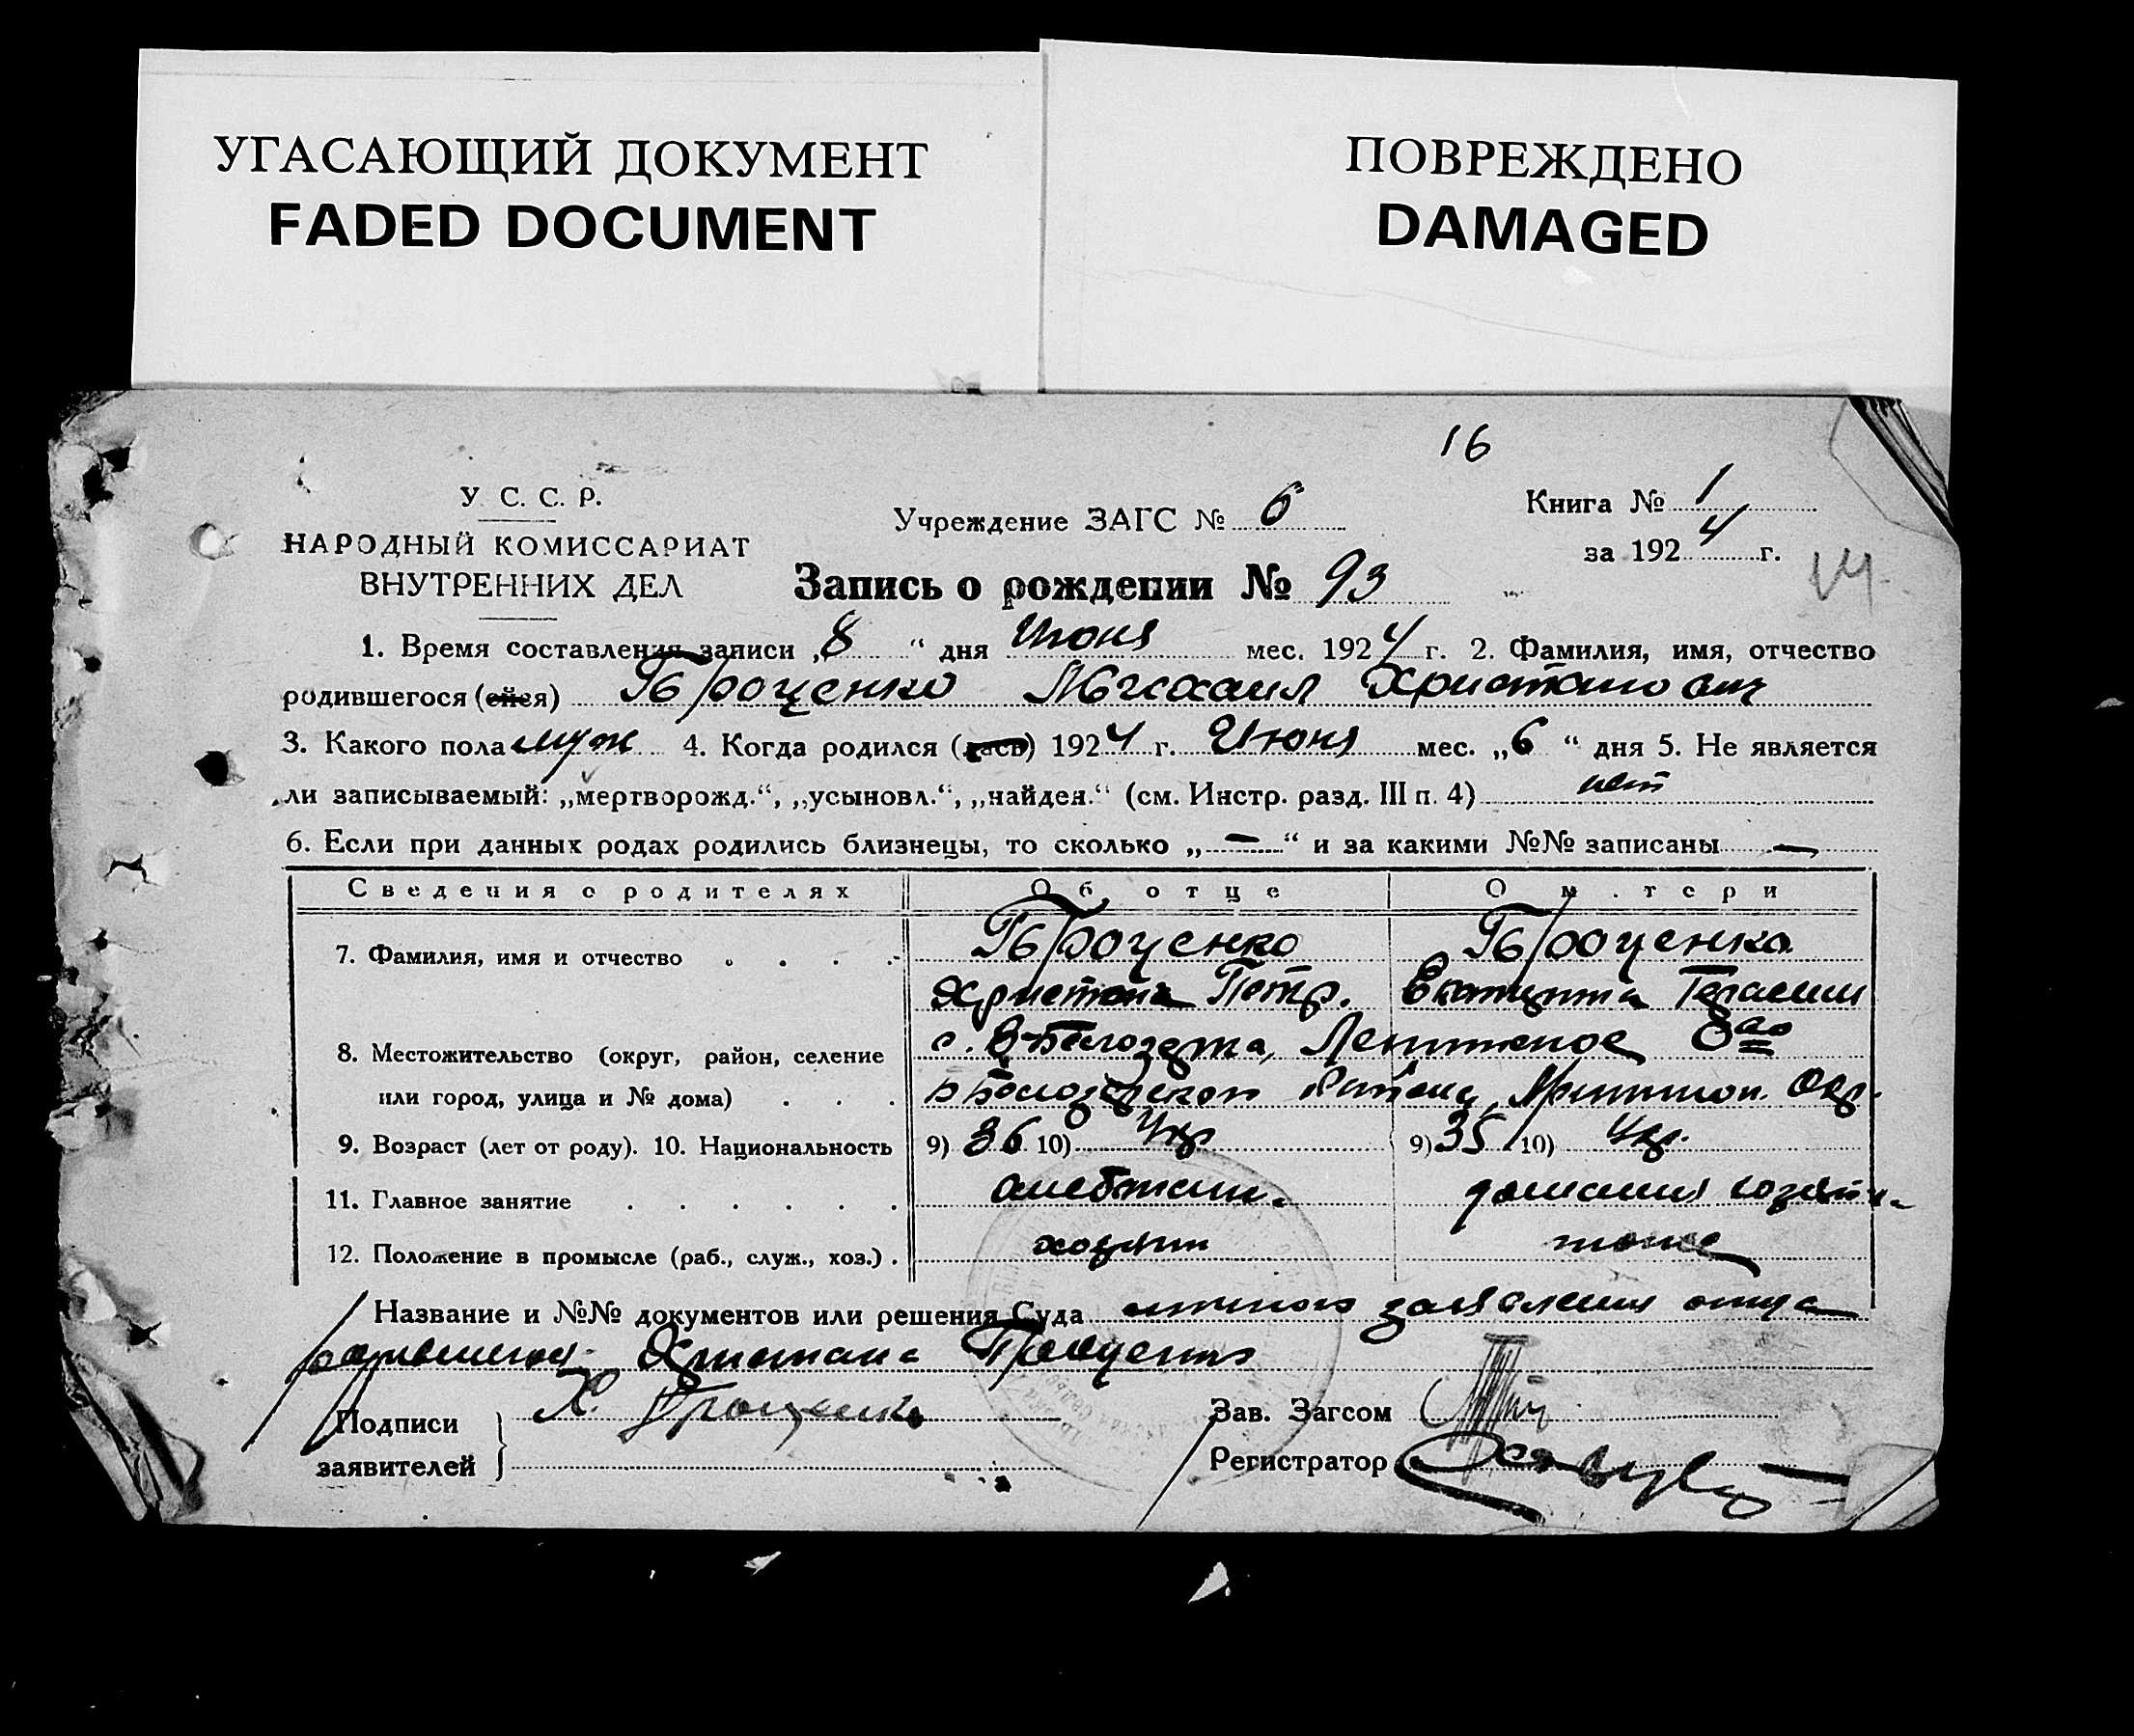 УГАСАЮЩИЙ ДОКУМЕНТ
FADED DOCUMENT
ПОВРЕЖДЕНО
DAMAGED
16
У. С. С. Р.
НАРОДНЫЙ КОМИССАРИАТ
ВНУТРЕННИХ ДЕЛ
Учреждение ЗАГС № 6
Книга № 1
за 1924 г.
Запись о рождении № 93
1. Время составления записи „8“ дня Июня мес. 1924 г. 2. Фамилия, имя, отчество
родившегося (ейся) Проценко Михаил Христанович
3. Какого пола муж 4. Когда родился (лась) 1924 г. Июня мес. „6“ дня 5. Не является
ли записываемый: „мертворожд.“, „усыновл.“, „найден.“ (см. Инстр. разд. III п. 4) нет
6. Если при данных родах родились близнецы, то сколько „—“ и за какими №№ записаны —
Сведения о родителях Об отце О м.тери
7. Фамилия, имя и отчество Проценко Проценко
Христан Петр. Екатерина Герасим
8. Местожительство (округ, район, селение с. В-Белозерка,
или город, улица и № дома) Белозерского Района,
9. Возраст (лет от роду). 10. Национальность 9) 36 10) Укр 9) 35 10) Укр.
11. Главное занятие домашня
12. Положение в промысле (раб., служ., хоз.) хозяин тоже
Название и №№ документов или решения Суда заявления отца
родившегося Христана Проценко
Подписи Х. Проценко
заявителей
Зав. Загсом
Регистратор